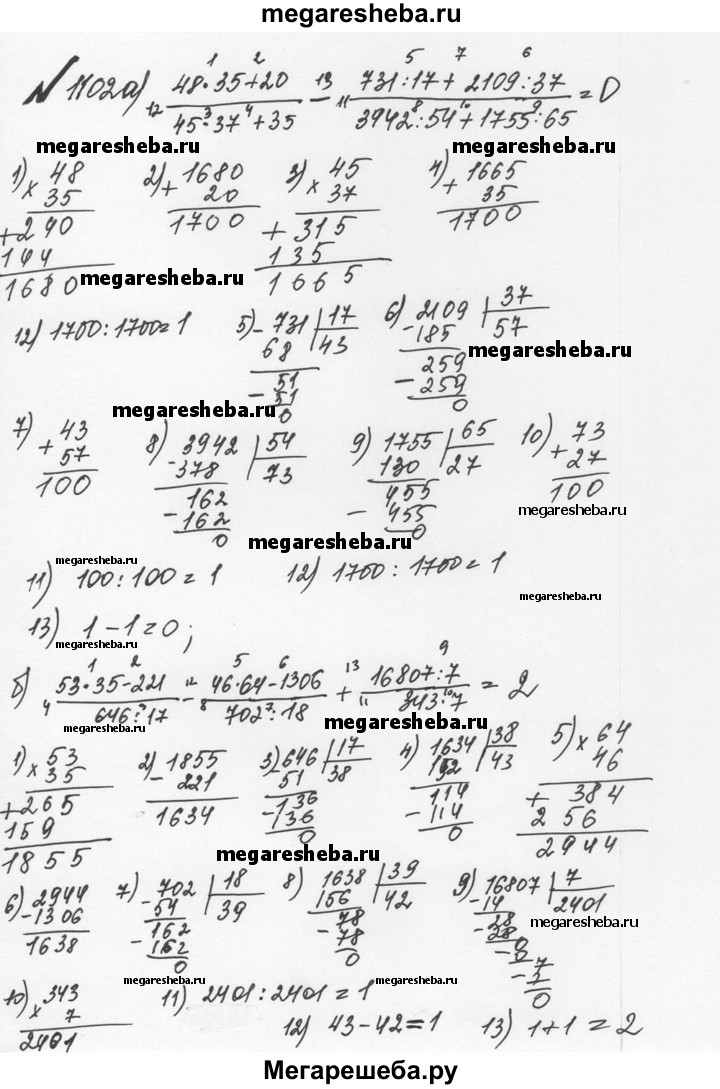 megaresheba.ru
№1102 а) (48·35+20)/(45·37+35) − (731:17+2109:37)/(3942:54+1755:65) = 0
megaresheba.ru megaresheba.ru
1) × 48 35 + 240 144 1680
2) + 1680 20 1700
3) × 45 37 + 315 135 1665
4) + 1665 35 1700
megaresheba.ru
12) 1700:1700=1
5) − 731 | 17 68 43 − 51 51 0
6) − 2109 | 37 185 57 − 259 259 0
megaresheba.ru
megaresheba.ru
7) + 43 57 100
8) − 3942 | 54 378 73 − 162 162 0
9) − 1755 | 65 130 27 − 455 455 0
10) + 73 27 100
megaresheba.ru
megaresheba.ru
megaresheba.ru
11) 100:100=1 12) 1700:1700=1
megaresheba.ru
13) 1−1=0;
megaresheba.ru
б) (53·35−221)/(646:17) − (46·64−1306)/(702:18) + (16807:7)/(343·7) = 2
megaresheba.ru
megaresheba.ru
1) × 53 35 + 265 159 1855
2) − 1855 221 1634
3) − 646 | 17 51 38 − 136 136 0
4) 1634 | 38 152 43 − 114 114 0
5) × 64 46 + 384 256 2944
megaresheba.ru
6) − 2944 1306 1638
7) − 702 | 18 54 39 − 162 162 0
8) 1638 | 39 156 42 − 78 78 0
9) − 16807 | 7 14 2401 − 28 28 0 − 0 7 − 7 0
megaresheba.ru
megaresheba.ru megaresheba.ru
10) × 343 7 2401
11) 2401:2401=1
12) 43−42=1 13) 1+1=2
Мегарешеба.ру